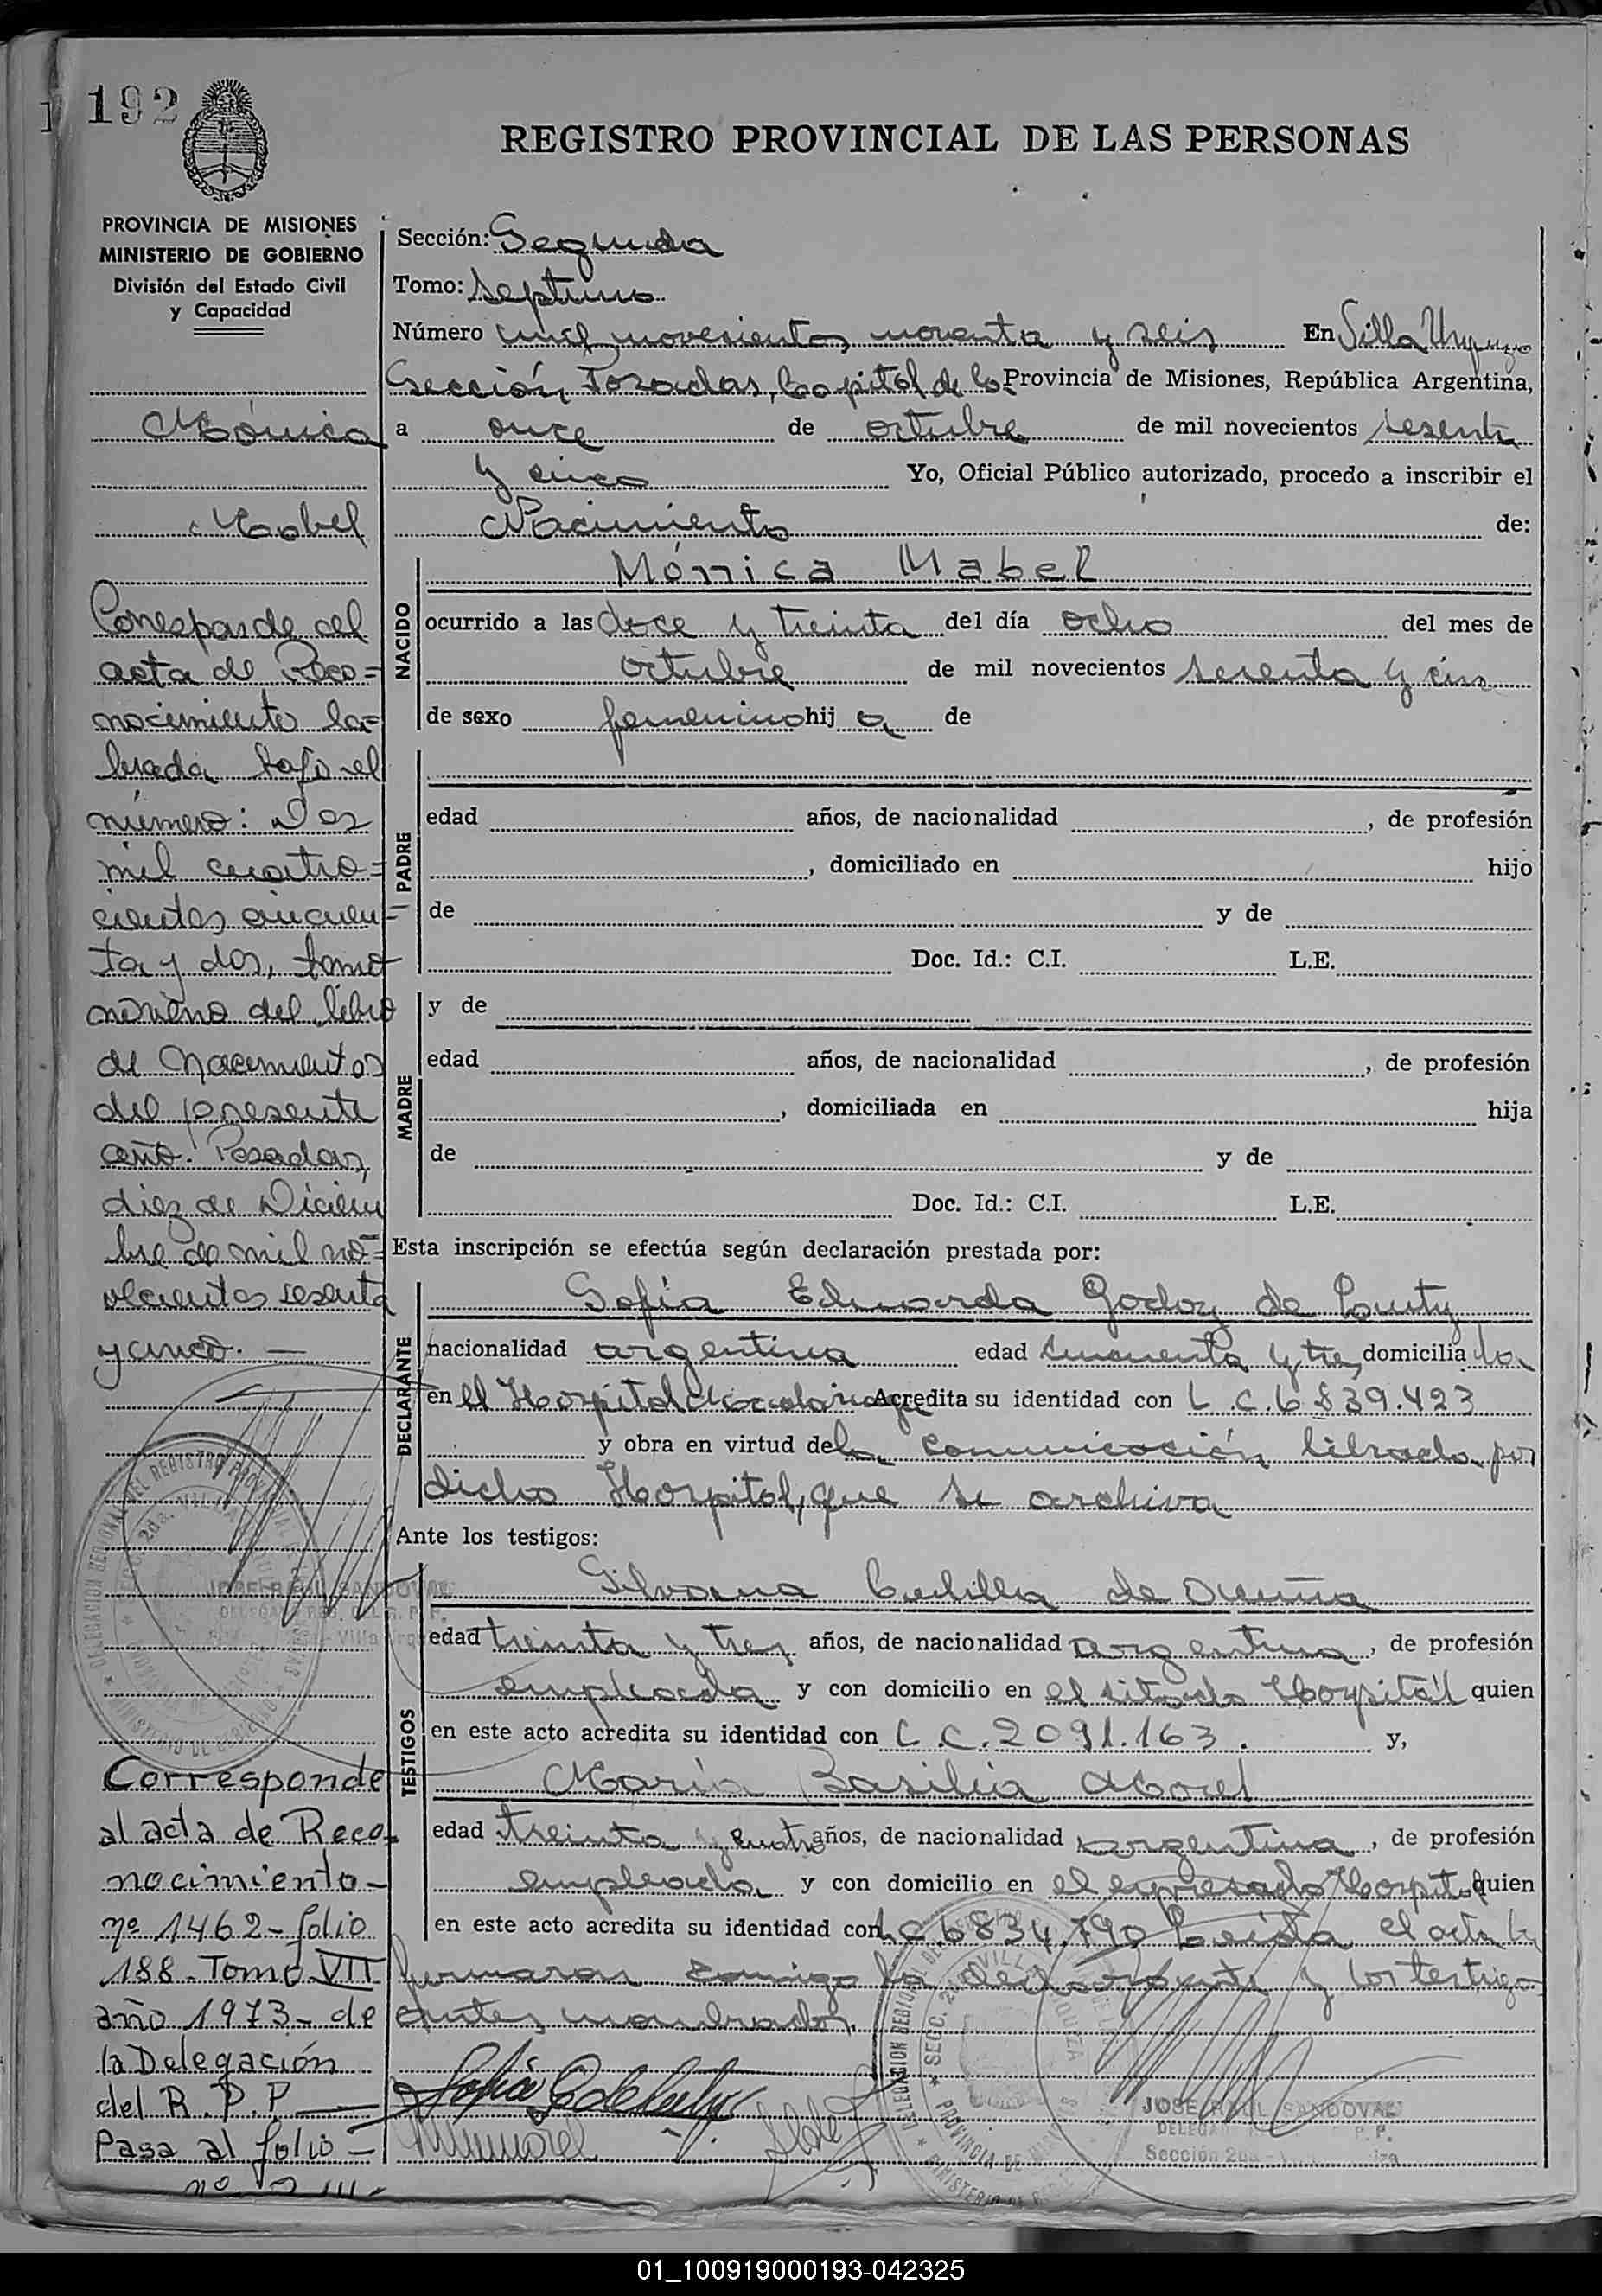 192
REGISTRO PROVINCIAL DE LAS PERSONAS
PROVINCIA DE MISIONES
MINISTERIO DE GOBIERNO
División del Estado Civil
y Capacidad
Mónica
Mabel
Corresponde al
acta de Reco=
nocimiento la=
brada bajo el
número: Dos
mil cuatro=
cientos cincuen=
ta y dos, tomo
noveno del libro
de Nacimientos
del presente
año. Posadas,
diez de Diciem
bre de mil no=
vecientos sesenta
y cinco. —
Corresponde
al acta de Reco-
nocimiento-
nº 1462- folio
188- Tomo VII
año 1973- de
la Delegación
del R.P.P —
Pasa al folio -
nº
Sección: Segunda
Tomo: Septimo
Número mil novecientos noventa y seis En Villa Urquiza
Sección Posadas, Capital de la Provincia de Misiones, República Argentina,
a once de octubre de mil novecientos sesenta
y cinco Yo, Oficial Público autorizado, procedo a inscribir el
Nacimiento de:
NACIDO
Mónica Mabel
ocurrido a las doce y treinta del día ocho del mes de
octubre de mil novecientos sesenta y cinco
de sexo femenino hij a de
PADRE
edad años, de nacionalidad , de profesión
, domiciliado en hijo
de y de
Doc. Id.: C.I. L.E.
MADRE
y de
edad años, de nacionalidad , de profesión
, domiciliada en hija
de y de
Doc. Id.: C.I. L.E.
Esta inscripción se efectúa según declaración prestada por:
DECLARANTE
Sofía Eduarda Godoy de
nacionalidad argentina edad cincuenta y tres, domicilia da
en el Hospital Madariaga Acredita su identidad con L.C. 6839.423
y obra en virtud de la comunicación librada por
dicho Hospital, que se archiva
Ante los testigos:
TESTIGOS
Silvana de Acuña
edad treinta y tres años, de nacionalidad argentina, de profesión
empleada y con domicilio en el citado Hospital quien
en este acto acredita su identidad con L.C. 2091.163. y,
María Basilia Morel
edad treinta y cuatro años, de nacionalidad argentina, de profesión
empleada y con domicilio en el expresado Hospital quien
en este acto acredita su identidad con L.C 6834.790 Leida el acta la
firmaron conmigo la declarante y los testigos
antes nombrados.
JOSE RAUL SANDOVAL
Sección 2da
01_100919000193-042325